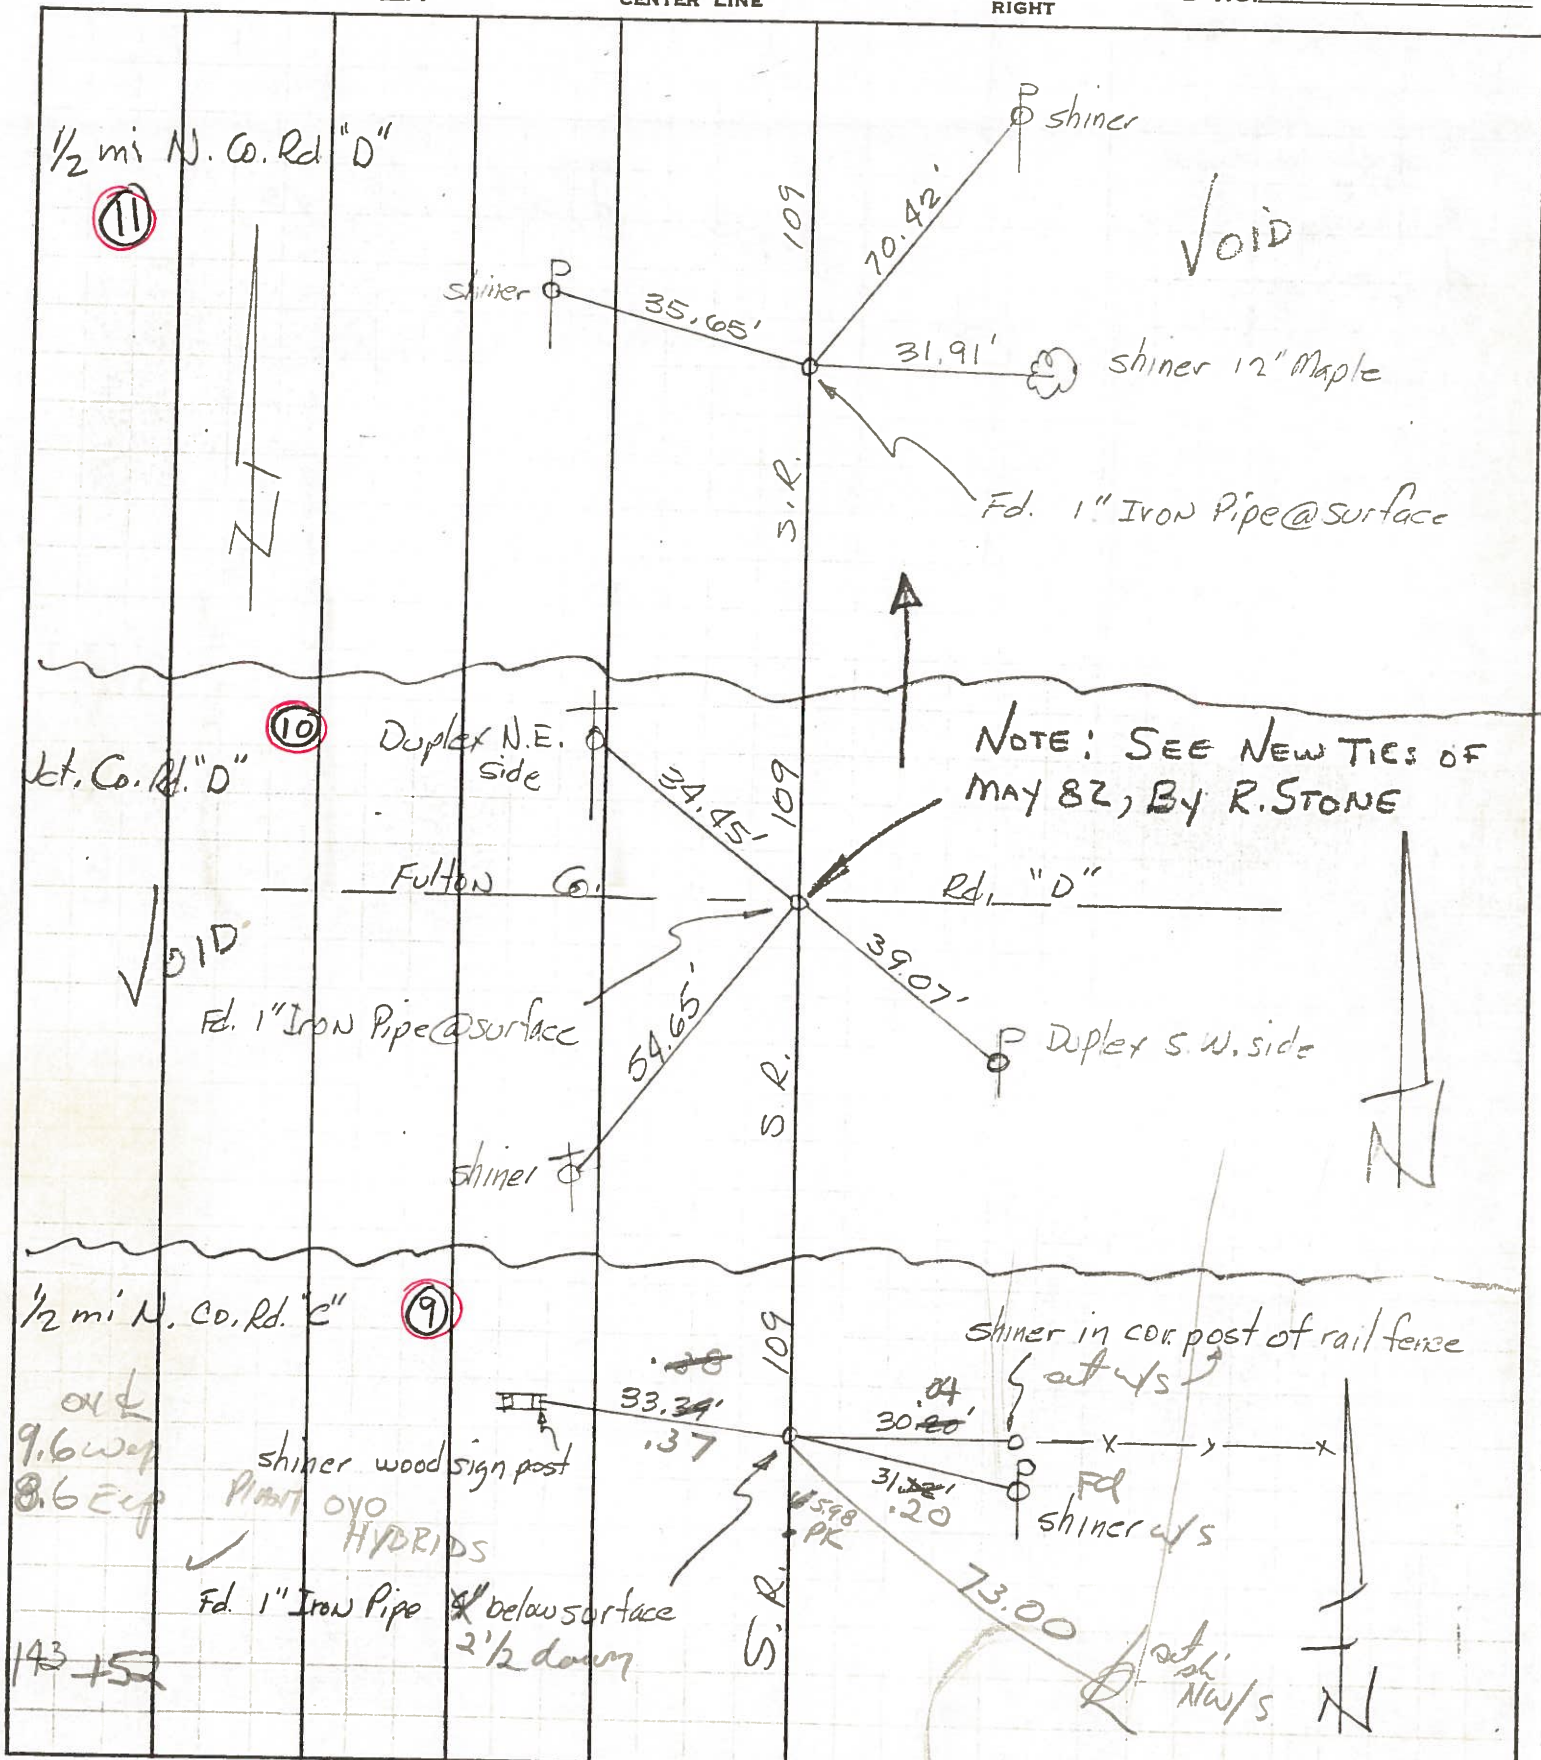 CENTER LINE
RIGHT
1/2 mi N. Co. Rd "D"
11
shiner
109
70.42'
VOID
shiner
35.65'
31.91'
shiner 12" Maple
S.R.
Fd. 1" Iron Pipe @ surface
N
10
Duplex N.E.
side
Jct. Co. Rd. "D"
34.45'
109
NOTE: SEE NEW TIES OF
MAY 82, BY R. STONE
Fulton Co.
Rd. "D"
VOID
39.07'
Fd. 1" Iron Pipe @ surface
54.65'
Duplex S.W. side
S.R.
shiner
N
1/2 mi N. Co. Rd. "C"
9
109
shiner in cor. post of rail fence
33.39'
.37
.04
30.20'
x x
9.6
8.6
shiner wood sign post
31.
.20
Fd
shiner w/s
PLANT OYO
HYDRIDS
5.98
PK
Fd. 1" Iron Pipe 4" below surface
2 1/2 down
S.R.
73.00
NW/S
143+52
N